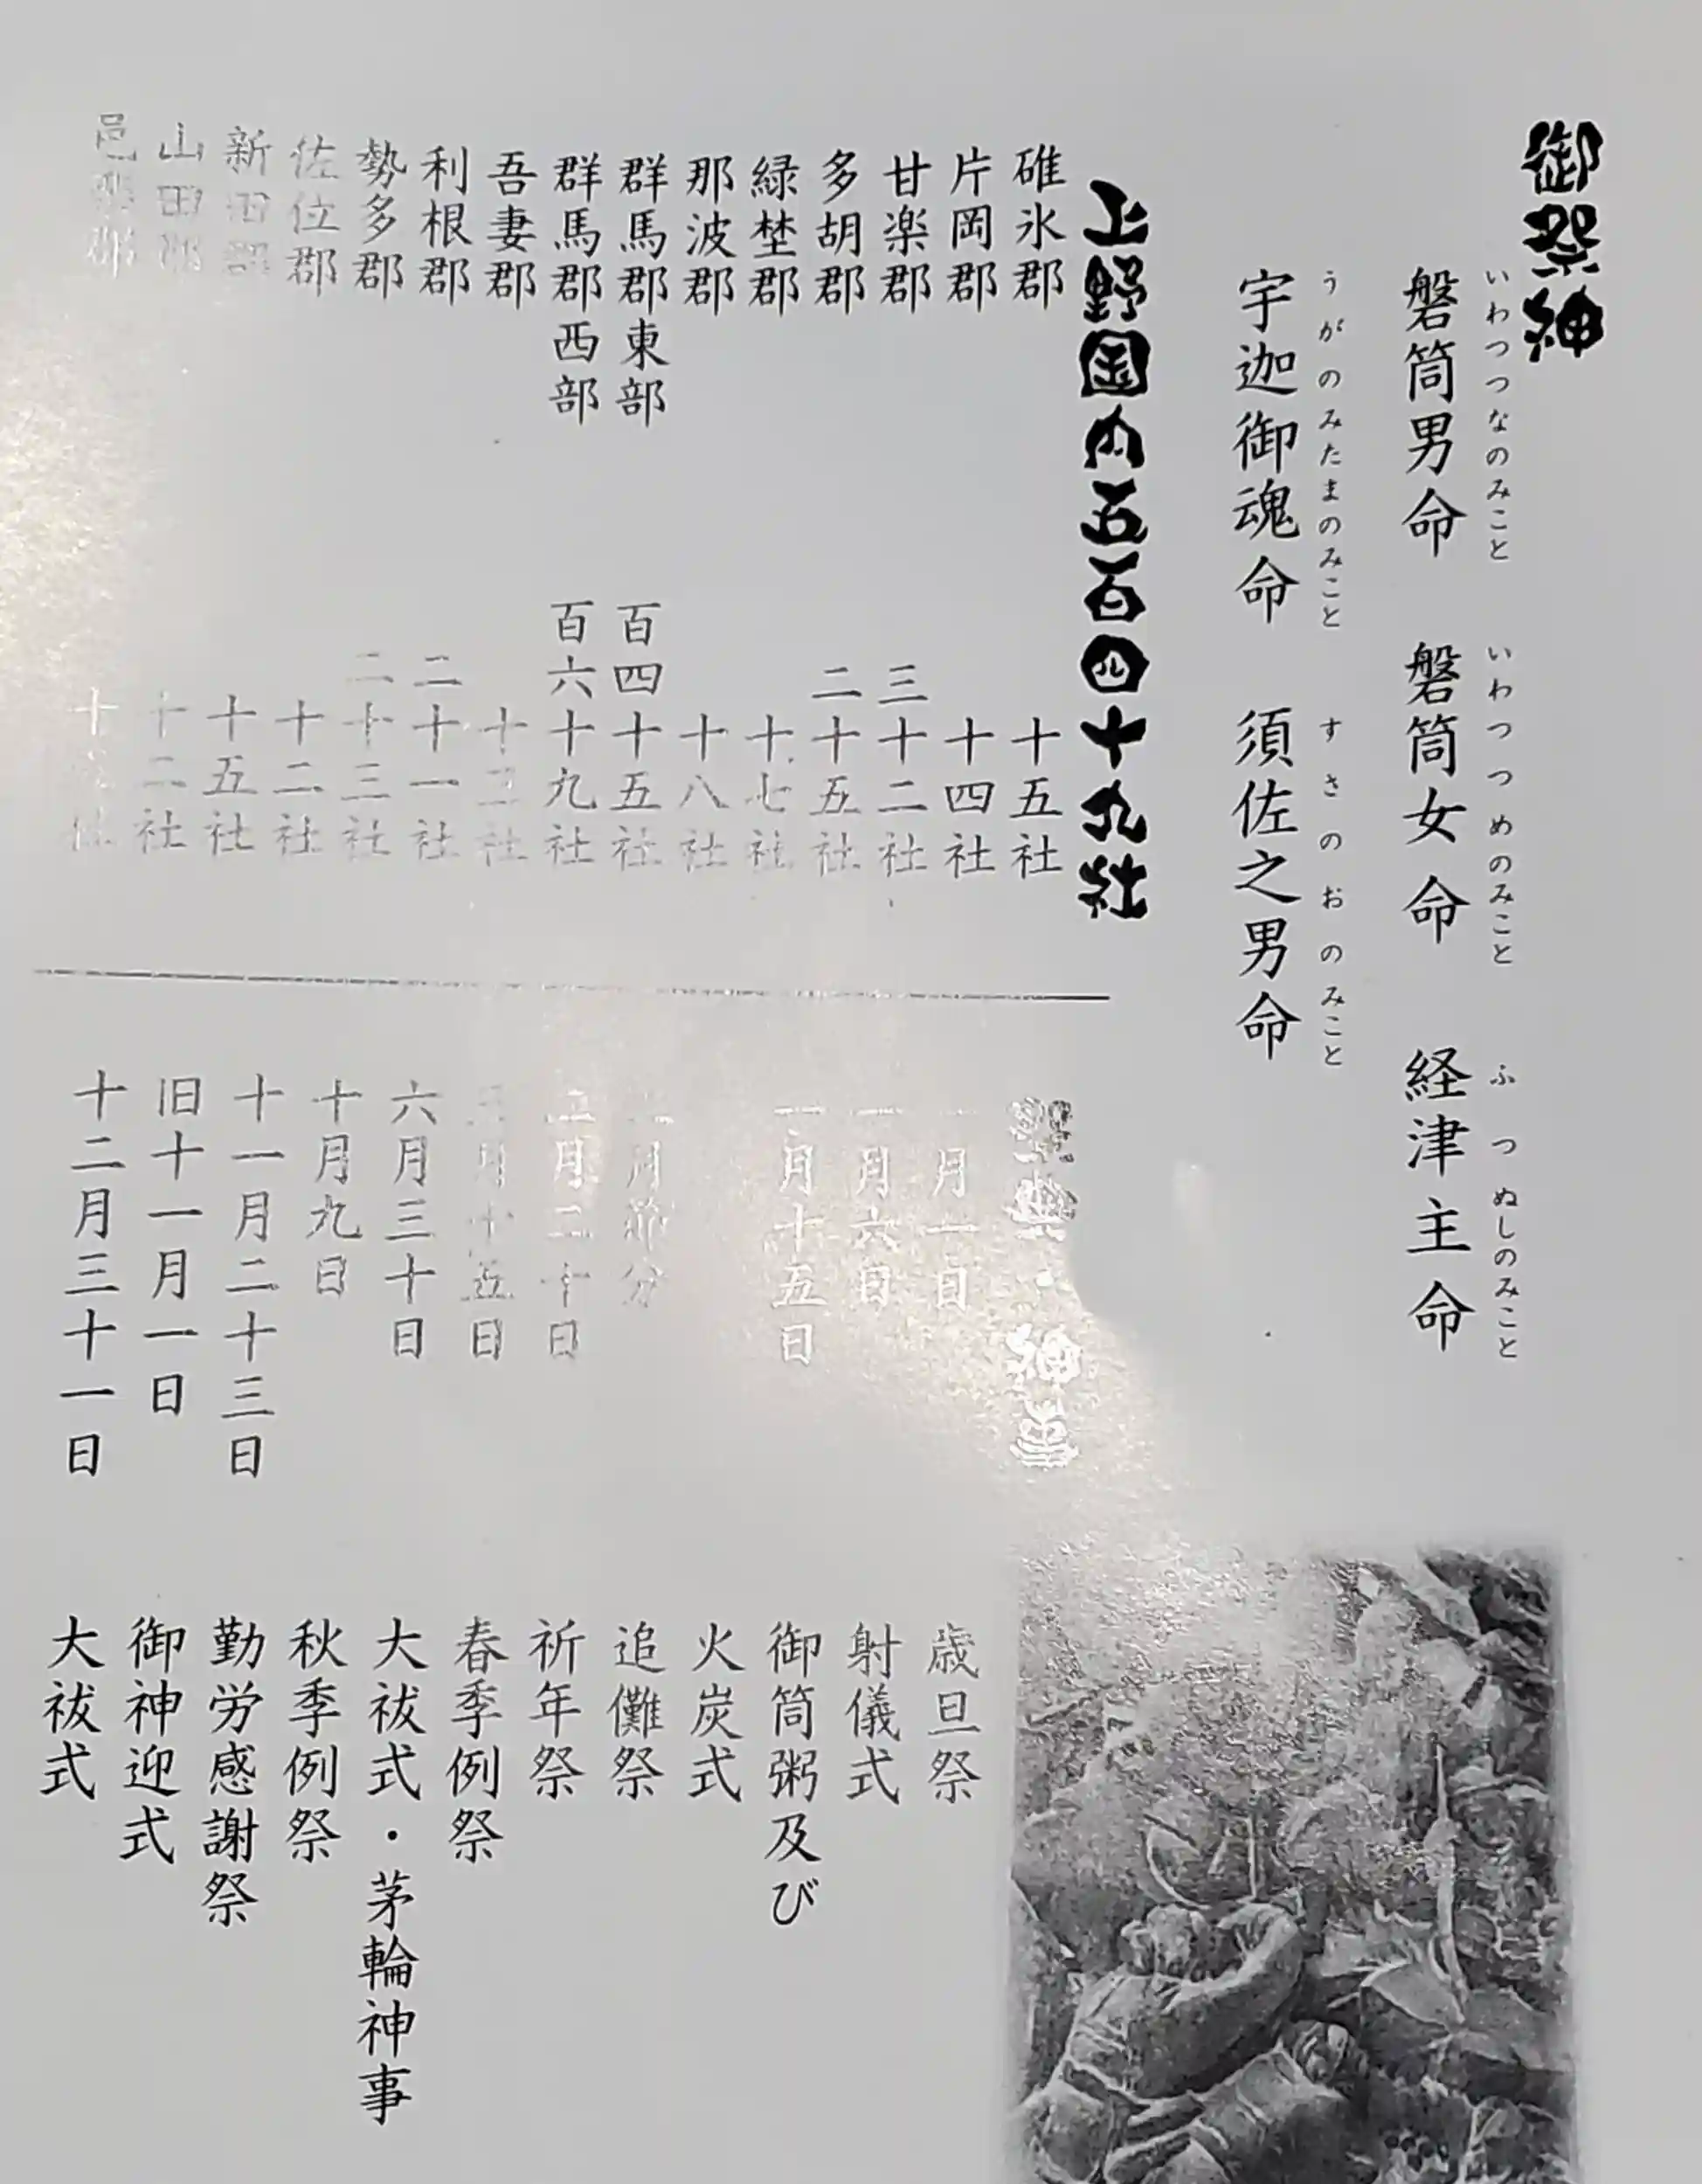 御祭神
いわつつなのみこと いわつつめのみこと ふつぬしのみこと
磐筒男命 磐筒女命 経津主命
うがのみたまのみこと すさのおのみこと
宇迦御魂命 須佐之男命
上野国内五百四十九社
碓氷郡 十五社
片岡郡 十四社
甘楽郡 三十二社
多胡郡 二十五社
緑埜郡 十七社
那波郡 十八社
群馬郡東部 百四十五社
群馬郡西部 百六十九社
吾妻郡 十三社
利根郡 二十一社
勢多郡 二十三社
佐位郡 十二社
新田郡 十五社
山田郡 十二社
邑楽郡 十 社
祭典・神事
一月一日 歳旦祭
一月六日 射儀式
一月十五日 御筒粥及び
火炭式
月節分 追儺祭
二月二十日 祈年祭
三月十五日 春季例祭
六月三十日 大祓式・茅輪神事
十月九日 秋季例祭
十一月二十三日 勤労感謝祭
旧十一月一日 御神迎式
十二月三十一日 大祓式